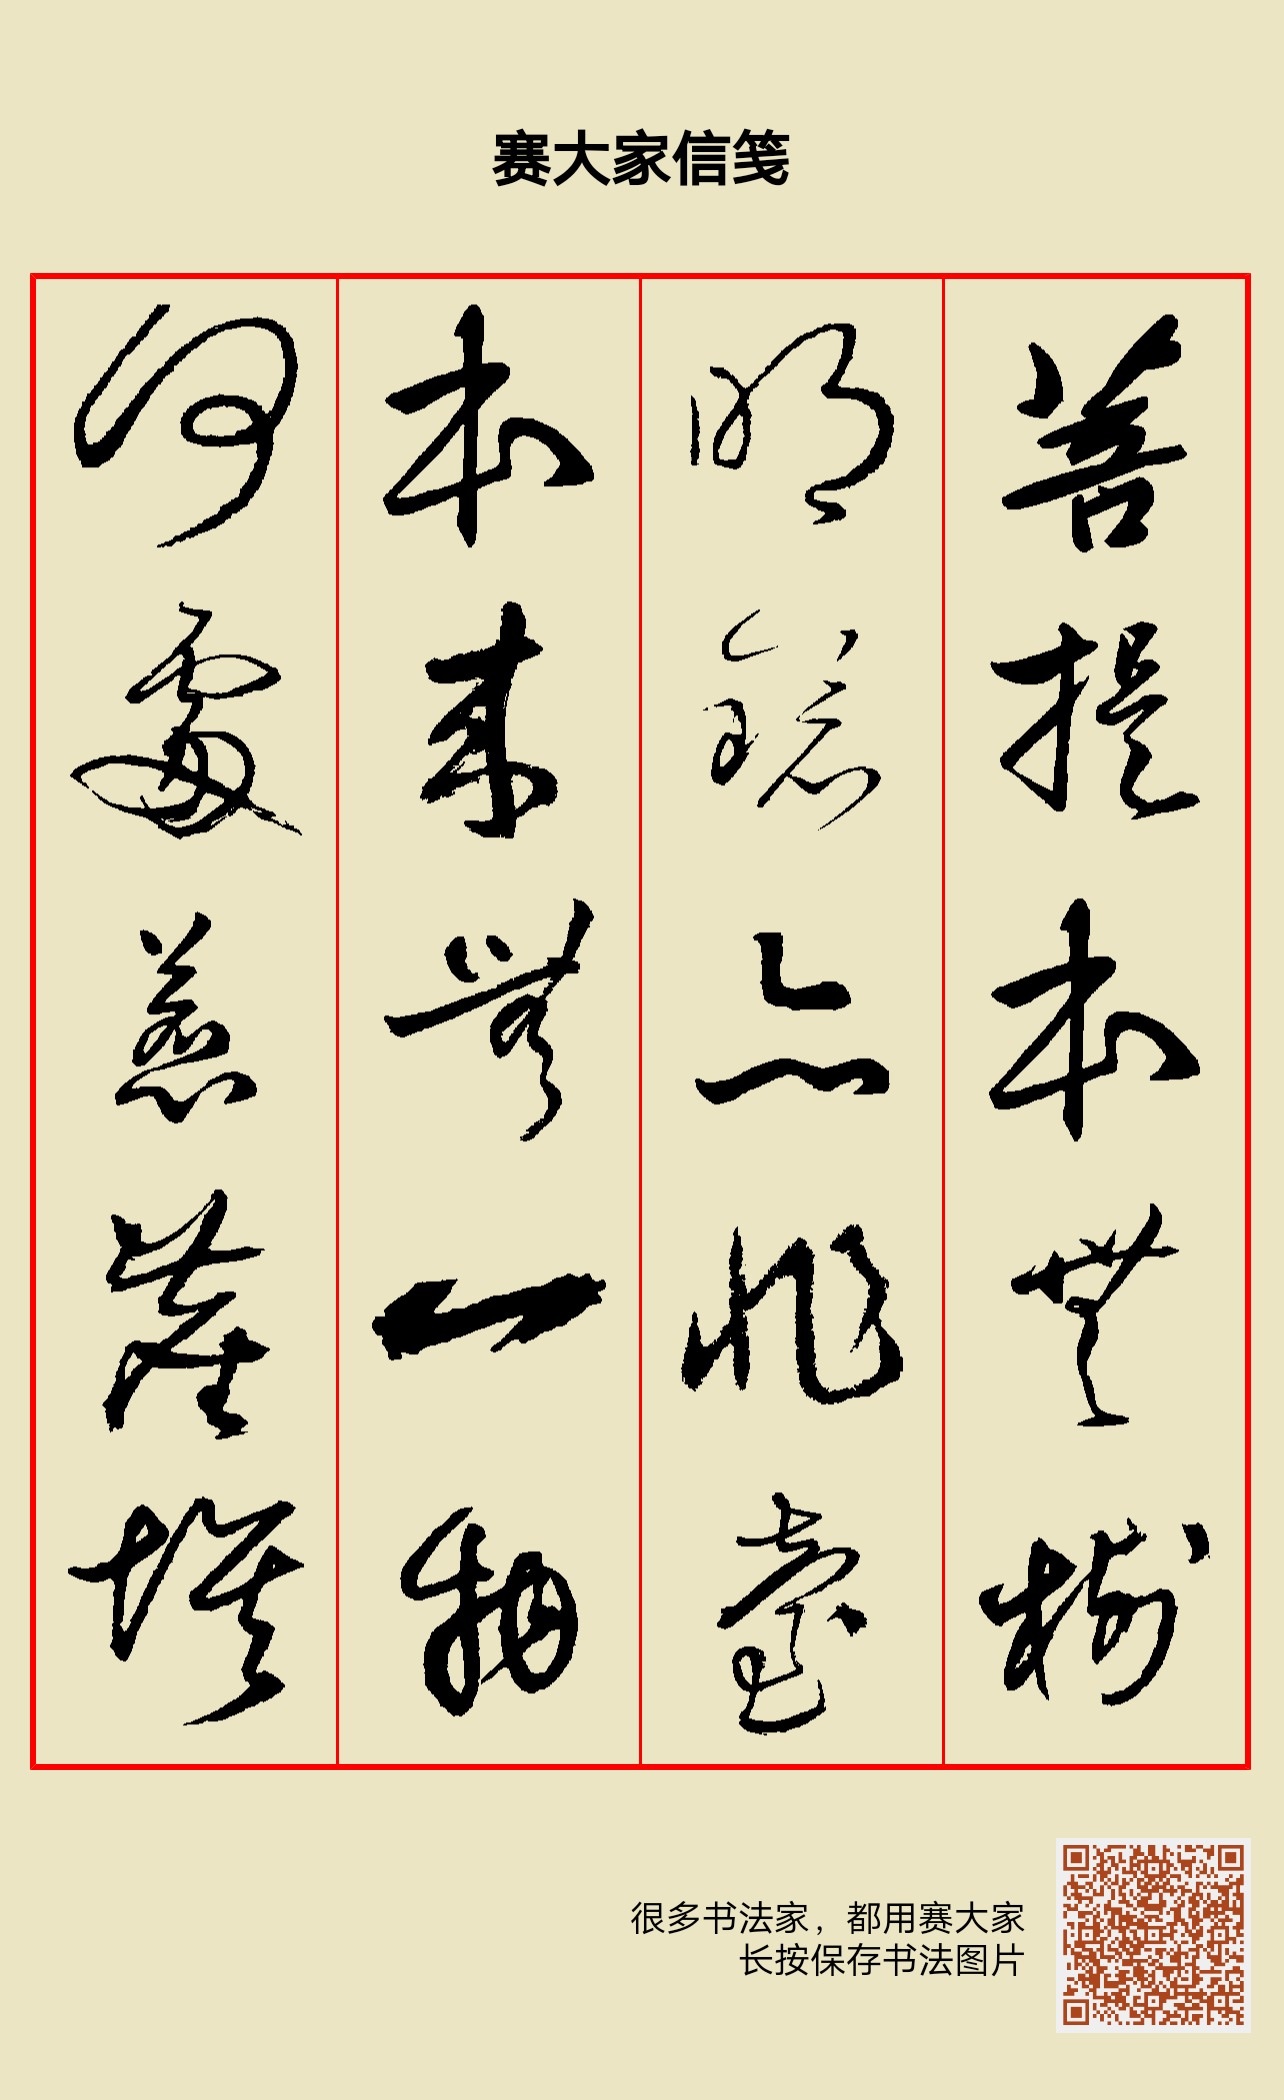 赛大家信笺
菩提本無樹
明鏡亦非臺
本來無一物
何處惹塵埃
很多书法家，都用赛大家
长按保存书法图片